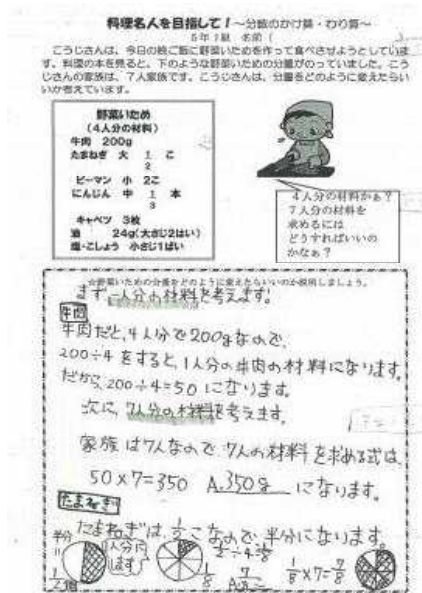 料理名人を目指して！～分数のかけ算・わり算～
5年1組 名前(
こうじさんは、今日の晩ご飯に野菜いためを作って食べさせようとしていま
す。料理の本を見ると、下のような野菜いための分量がのっていました。こう
じさんの家族は、7人家族です。こうじさんは、分量をどのように変えたらい
いか考えています。
野菜いため
(4人分の材料)
牛肉 200g
たまねぎ 大 1/2 こ
ピーマン 小 2こ
にんじん 中 1/3 本
キャベツ 3枚
油 24g(大さじ2はい)
塩・こしょう 小さじ1ぱい
4人分の材料かぁ？
7人分の材料を
求めるには
どうすればいいの
かなぁ？
☆野菜いための分量をどのように変えたらいいのか説明しましょう。
まず一人分の材料を考えます。
牛肉
牛肉だと、4人分で200gなので、
200÷4をすると、1人分の牛肉の材料になります。
だから、200÷4=50になります。
次に、7人分の材料を考えます。
家族は7人なので7人の材料を求める式は、
50×7=350 A.350g になります。
たまねぎ
たまねぎは、1/2こなので、半分になります。
半分
=
1/2個
1/2÷4=1/8
1/8
A.7/8こ
1/8×7=7/8